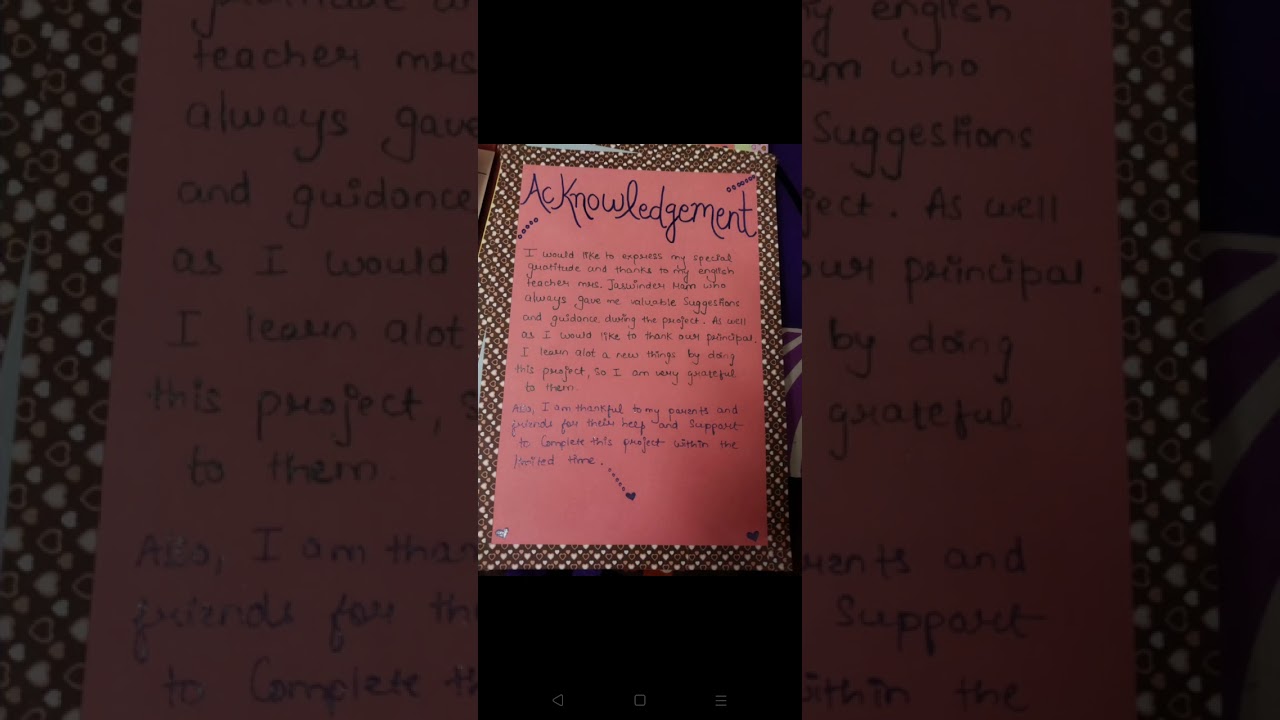 AcKnowledgement
I would like to express my special
gratitude and thanks to my english
teacher mrs. Jaswinder Mam who
always gave me valuable Suggestions
and guidance during the project. As well
as I would like to thank our principal.
I learn alot a new things by doing
this project, so I am very grateful
to them.
Also, I am thankful to my parents and
friends for their help and Support
to Complete this project within the
limited time.